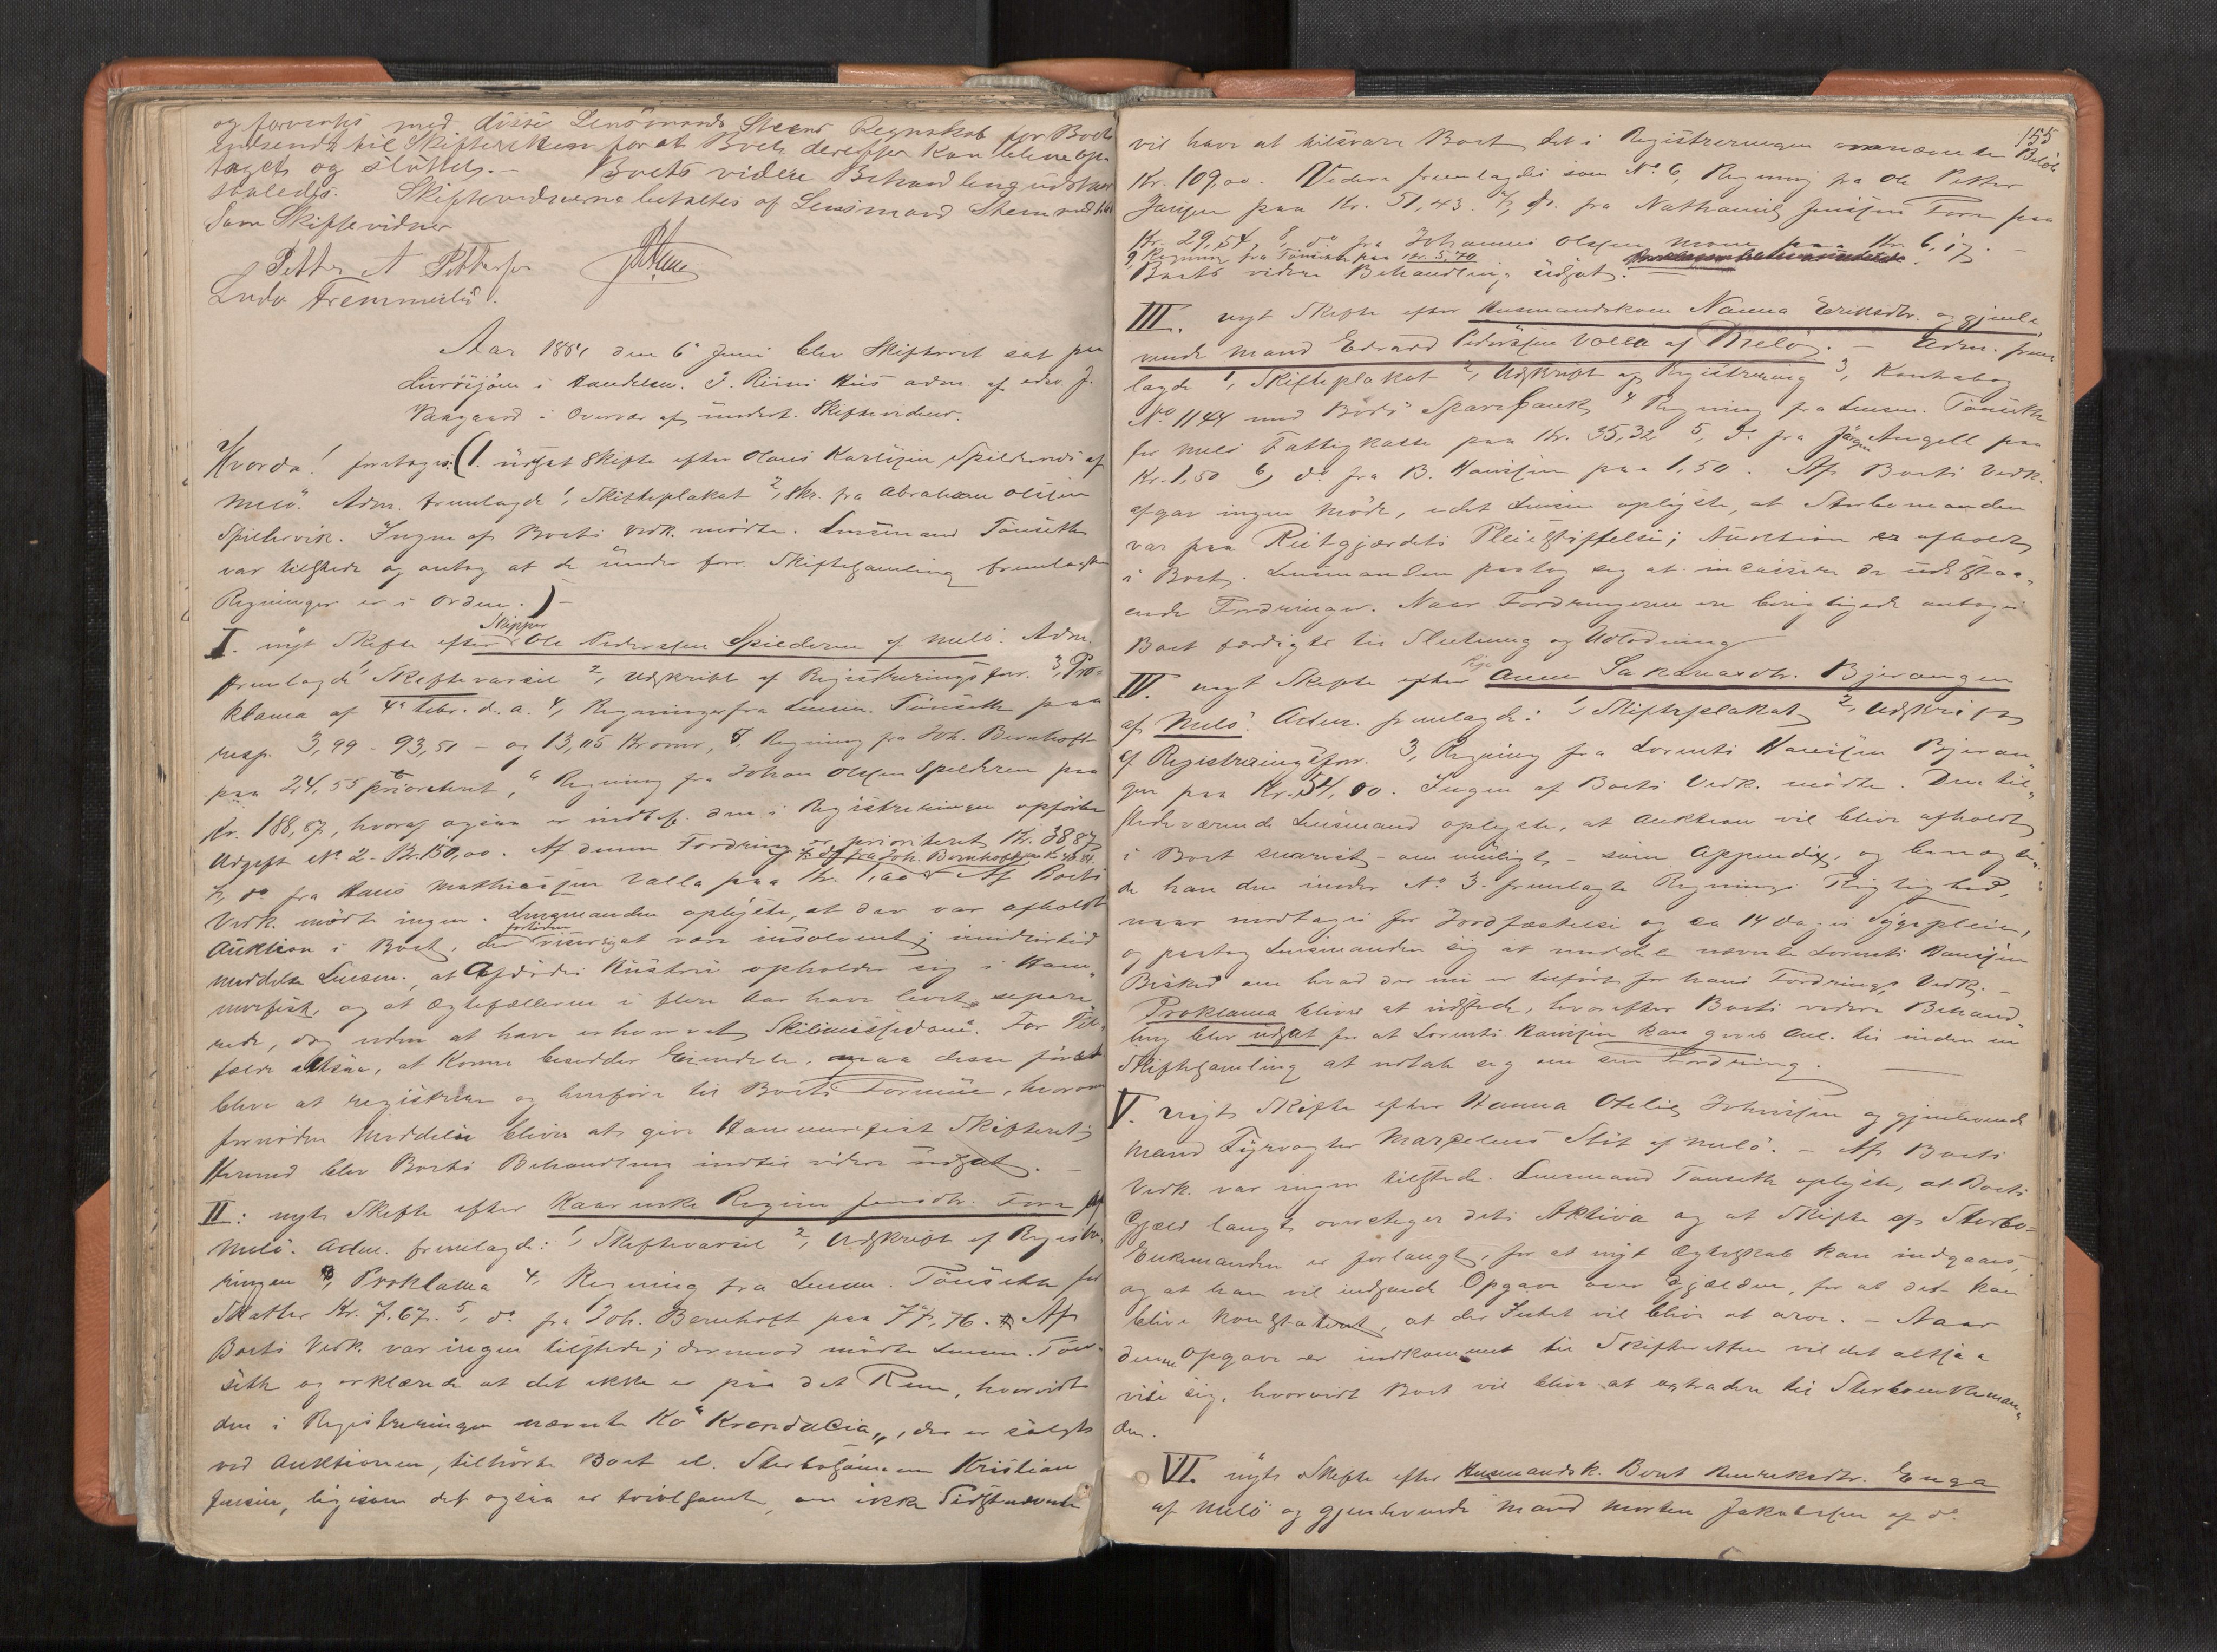 og forventes med disse Lensmand Steens Regnskab for Boets
indsendt til Skifteretten for at Boets derefter kan blive op-
taget og sluttes. — Boets videre Behandling udstaar
saaledes. Skiftevidnerne betaltes af Lensmand Steen
Som Skiftevidner
Petter A Pettersen
Ludv Fremmerlid.
Aar 1884 den 6 Juni blev Skifteret sat paa
Lurøigaard i Handelsm. J. Riins Hus adm. af edsv. J.
Vaagaard i Overvær af undert. Skiftevidner.
Hvorda! foretoges: (1. udsat Skifte efter Olaus Karlsen Spilderness af
Melö. Adm. fremlagde 1, Skifteplakat 2, Skr. fra Abraham Olsen
Spildervik. Ingen af Boets Vedk. mödte. Lensmand Tönseth
var tilstede og antog at de under forr. Skiftesamling fremlagte
Regninger er i Orden.) —
I. nyt Skifte efter Skipper Ole Pedersen Spilderen af Melö. Adm.
fremlagde 1, Skiftevarsel 2, Udskrift af Registreringsforr. 3, Pro-
klama af 4de Febr. d. a. 4, Regninger fra Lensm. Tönseth paa
resp. 3,99 - 93,51 - og 13,05 Kroner, 5. Regning fra Joh. Bernhoft
paa 24,55 prioriteret, 6 Regning fra Johan Olsen Spilderen paa
Kr. 188,87, hvoraf ogsaa er indbef. den i Registreringen opförte
Udgift No 2 - Kr. 150,00. Af denne Fordring er prioriteret Kr. 38,87
7, do fra Joh. Bernhoft
7, do fra Hans Mathiassen Valla paa Kr. 1,60 Af Boets
Vedk. mödte ingen. Lensmanden oplyste, at der var afholdt
Auktion i Boet, der forløbig viser sig at være insolvent; imidlertid
meddelte Lensm. at Afdödes Hustru opholder sig i Ham-
merfest, og at Ægtefællerne i flere Aar have levet separe-
rede, dog uden at have erhvervet Skilsmissedom. For Til-
fælde altsaa, at Konen besidder Eiendele, maa disse först
blive at registrere og henföre til Boets Formue, hvorom
fornöden Meddelse bliver at give Hammerfest Skifteret;
Hermed blev Boets Behandling indtil videre udsat. —
II: nyt Skifte efter Kaarinke Regine Jensdtr. Torr af
Melö. Adm. fremlagde: 1, Skiftevarsel 2, Udskrift af Registre-
ringen 3, Proklama 4, Regning fra Lensm. Tönseth for
Skatter Kr. 7,67. 5, do fra Joh. Bernhoft paa 77,76. Af
Boets Vedk. var ingen tilstede; derimod mödte Lensm. Tön-
seth og erklærede at det ikke er paa det Rene, hvorvidt
den i Registreringen nævnte Ko "Krondalia", der er solgt
ved Auktionen, tilhörte Boet el. Sterbosönnen Kristian
Jensen, ligesom det ogsaa er tvivlsomt, om ikke Sidstnævnte
155
vil have at tilsvare Boet det i Registreringen omnævnte Belöb
Kr. 109,00. Videre fremlagdes som No 6, Regning fra Ole Petter
Jensen paa Kr. 51,43. 7, do. fra Nathanael Jensen Torr paa
Kr. 29,54, 8, do fra Johannes Olsen Moen paa Kr. 6,17.
9, Regning fra Tönseth paa Kr. 5,70
Boets videre Behandling udsat.
III. nyt Skifte efter Husmandskone Nanna Eriksdtr. og gjenle-
vende Mand Edvard Pedersen Valla af Melö. — Adm. frem-
lagde 1, Skifteplakat 2, Udskrift af Registrering 3, Kontrabog
No 1144 med Bodö Sparebank 4 Regning fra Lensm. Tönseth
for Melö Fattigkasse paa Kr. 35,32 5, do. fra Jörgen Angell paa
Kr. 1,50 6, do fra B. Hansen paa 1,50. Af Boets Vedk.
afgav ingen Möde, idet Lensm. oplyste, at Sterbomanden
var paa Reitgjærdets Pleiestiftelse; Auktion er afholdt
i Boet. Lensmanden paatog sig at incassere de udestaa-
ende Fordringer. Naar Fordringerne ere berigtigede antages
Boet færdigt til Slutning og Udlodning
IV. nyt Skifte efter Pige Anne Sakariasdtr. Bjerangen
af Melö. Adm. fremlagde: 1, Skifteplakat, 2, Udskrift
af Registreringsforr. 3, Regning fra Lorents Hansen Bjeran-
gen paa Kr. 54,00. Ingen af Boets Vedk. mödte. Den til-
stedeværende Lensmand oplyste, at Auktion vil blive afholdt
i Boet snarest - om muligt - som Appendix, og benægte-
de han den under No 3 fremlagte Regnings Rigtighed,
naar undtages for Jordfæstelse og ca 14 Dages Sygepleie,
og paatog Lensmanden sig at meddele nævnte Lorents Hansen
Besked om hvad der nu er tilfört for hans Fordrings Vedk. —
Proklama bliver at udstede, hvorefter Boets videre Behand-
ling blev udsat for at Lorents Hansen kan gives Anl. til inden en
Skiftesamling at udtale sig om sin Fordring. —
V. nyt Skifte efter Hanna Otelie Johnsen og gjenlevende
Mand Fyrvogter Marselius Stöt af Melö. — Af Boets
Vedk. var ingen tilstede. Lensmand Tönseth oplyste, at Boets
Gjæld langt overstiger dets Aktiva og at Skifte af Sterbo-
Enkemanden er forlangt, for at nyt Ægteskab kan indgaaes,
og at han vil indsende Opgave over Gjælden, for at det kan
blive konstateret, at der Intet vil blive at arve. — Naar
denne Opgave er indkommet til Skifteretten vil det altsaa
vise sig, hvorvidt Boet vil blive at extradere til Sterboenkeman-
den.
VI. nyt Skifte efter Husmandsk. Berit Henriksdtr. Enga
af Melö og gjenlevende Mand Morten Jakobsen af do